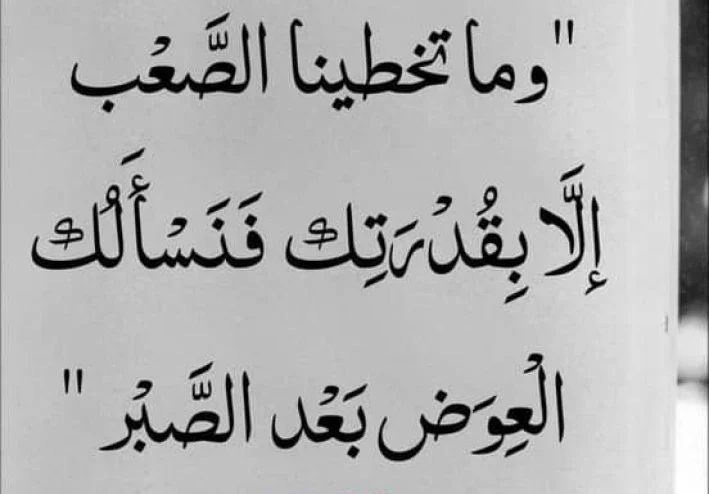 "وما تخطينا الصَّعْب
إلَّا بِقُدْرَتِك فَنَسْأَلُك
الْعِوَض بَعْد الصَّبْر "